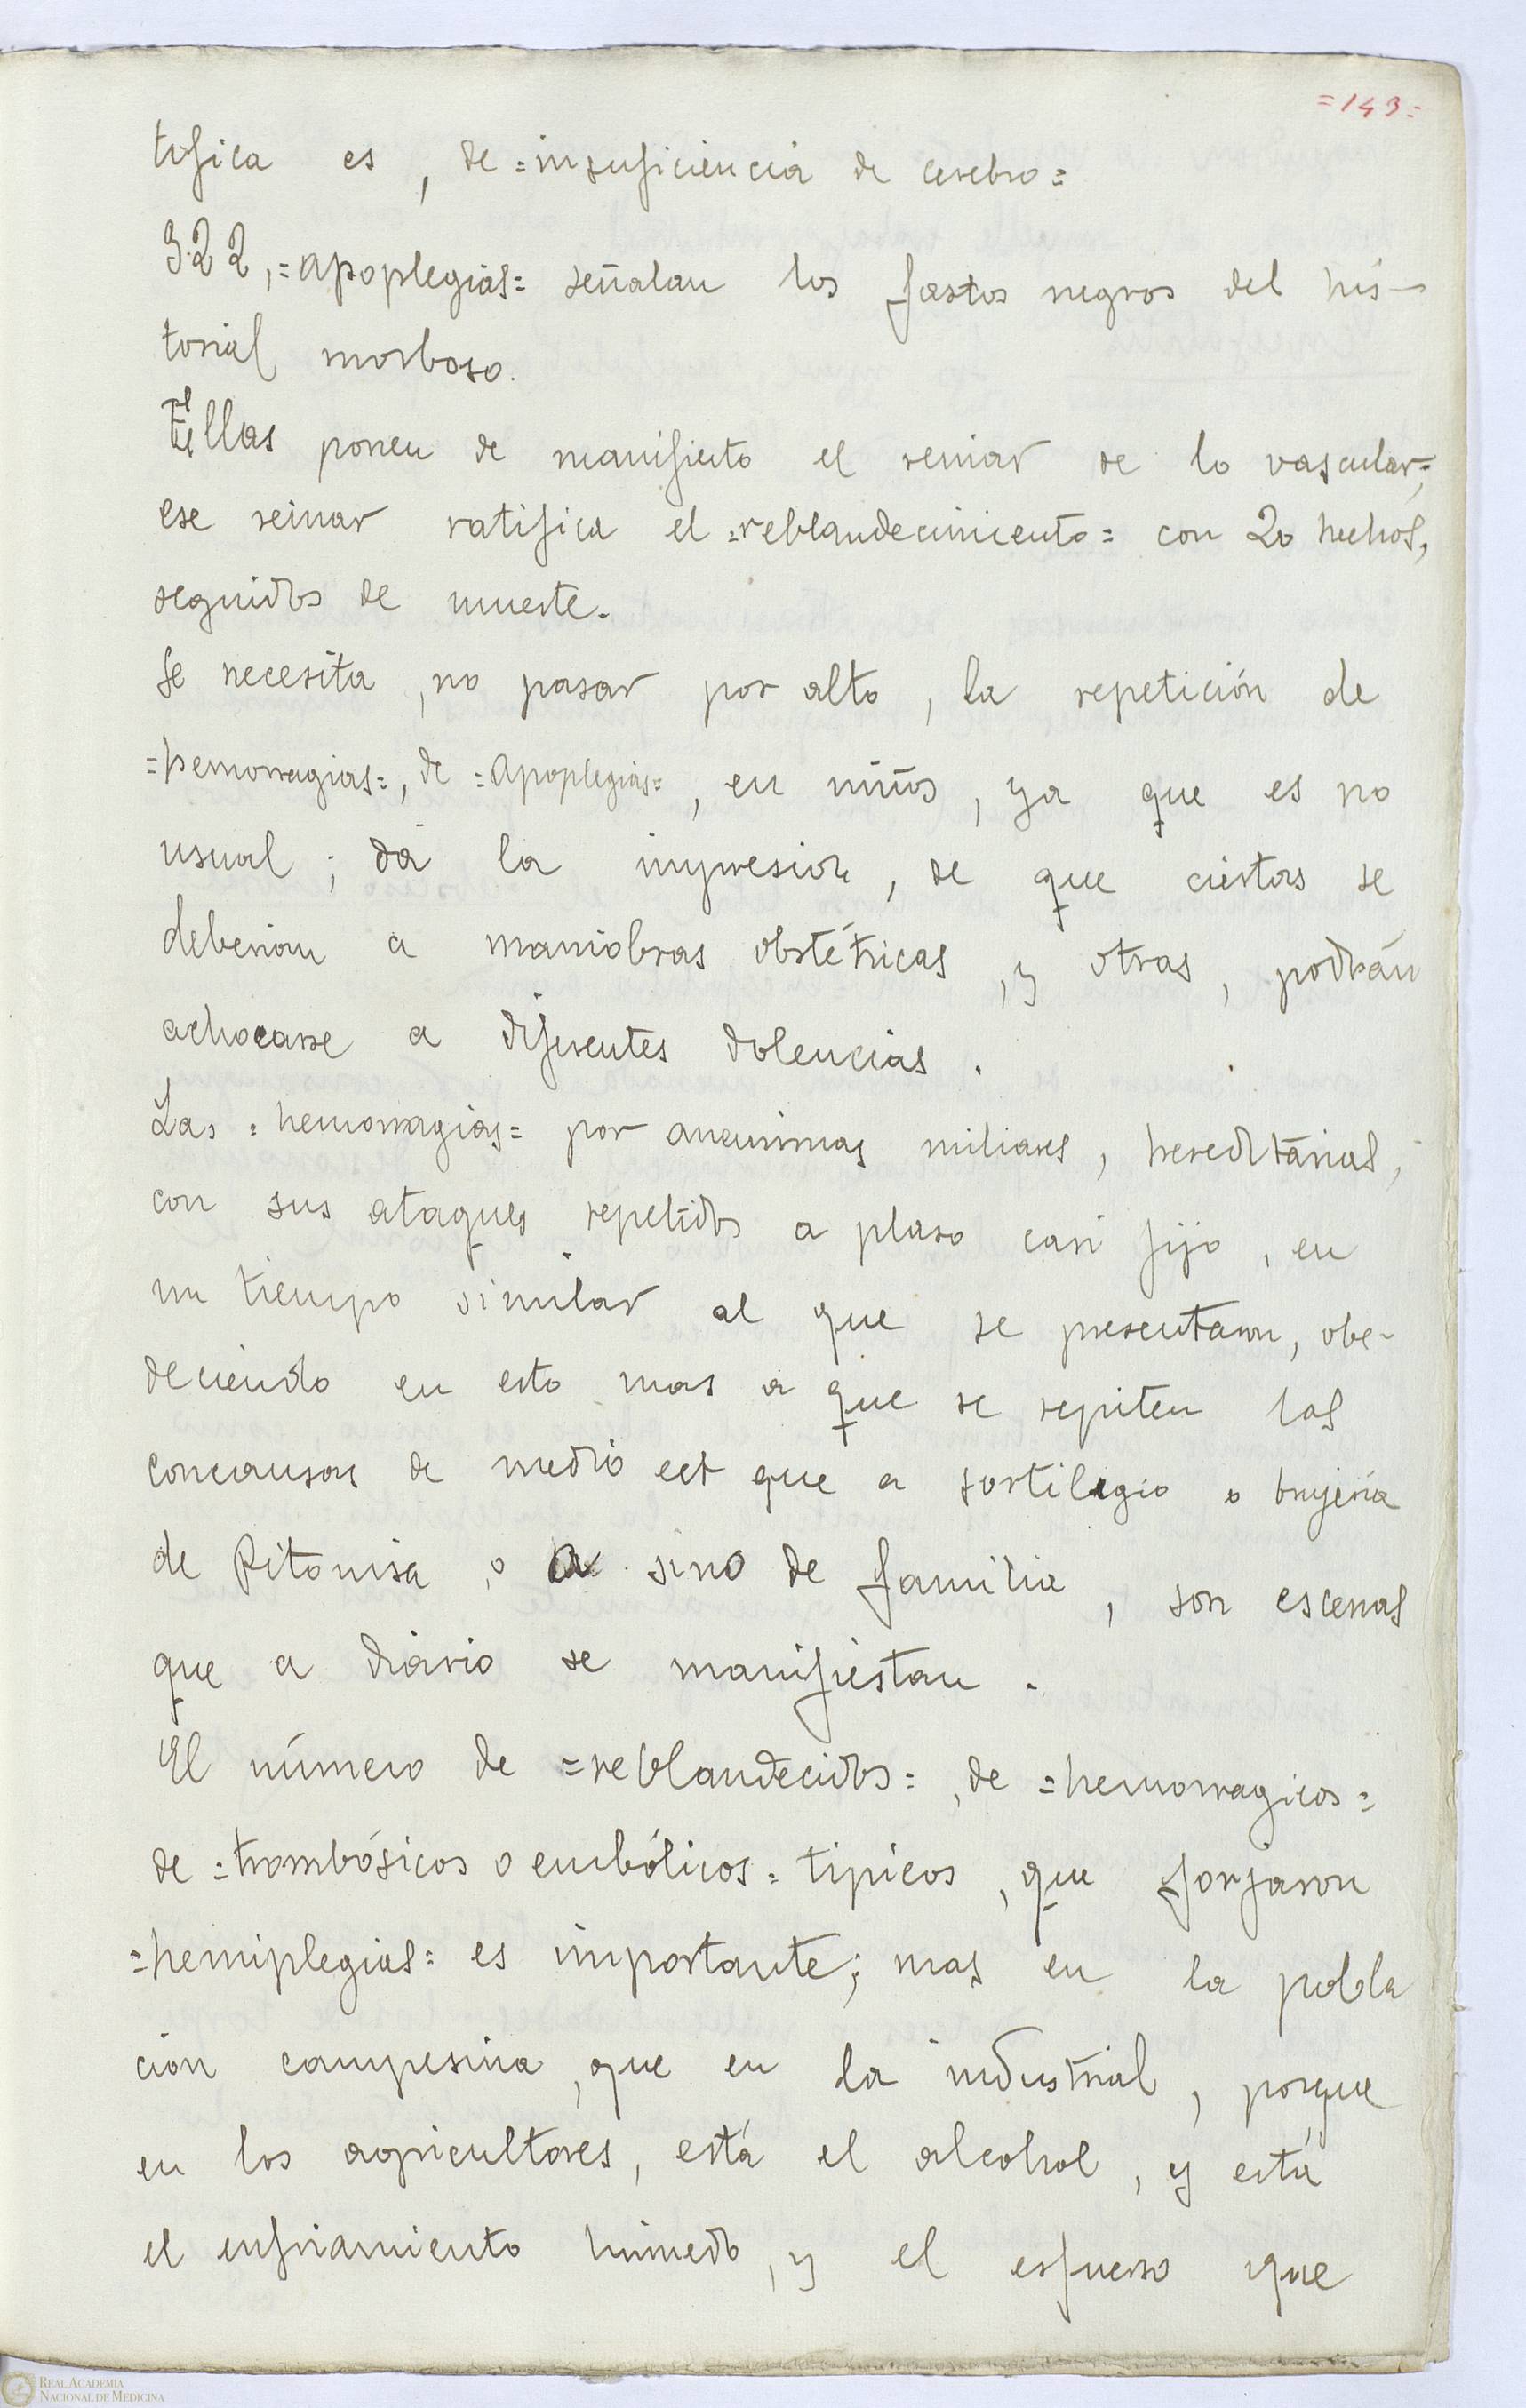 =143=
tofica es, de =insuficiencia de cerebro=
322, =apoplegias= señalan los fastos negros del his-
torial morboso.
Ellas ponen de manifiesto el reinar de lo vascular;
ese reinar ratifica el =reblandecimiento= con 20 hechos,
seguidos de muerte.
Se necesita, no pasar por alto, la repetición de
=hemorragias=, de =apoplegias=, en niños, ya que es no
usual; dá la impresion, de que ciertas se
deberian a maniobras obstétricas, y otras, podrán
achocarse a diferentes dolencias.
Las =hemorragias= por aneurimas miliares, hereditárias,
con sus ataques repetidos a plaso casi fijo, en
un tiempo similar al que se presentaron, obe-
deciendo en esto mas a que se repiten las
concausas de medio ect que a sortilegio o brujeria
de Pitonisa, o a sino de familia, son escenas
que a diario se manifiestan.
El número de =reblandecidos=, de =hemorragicos=
de =trombósicos o embólicos= tipicos, que forjaron
=hemiplegias= es importante; mas en la pobla
cion campesina, que en la industrial, porque
en los agricultores, está el alcohol, y está
el enfriamiento húmedo, y el esfuerso que
REAL ACADEMIA
NACIONAL DE MEDICINA